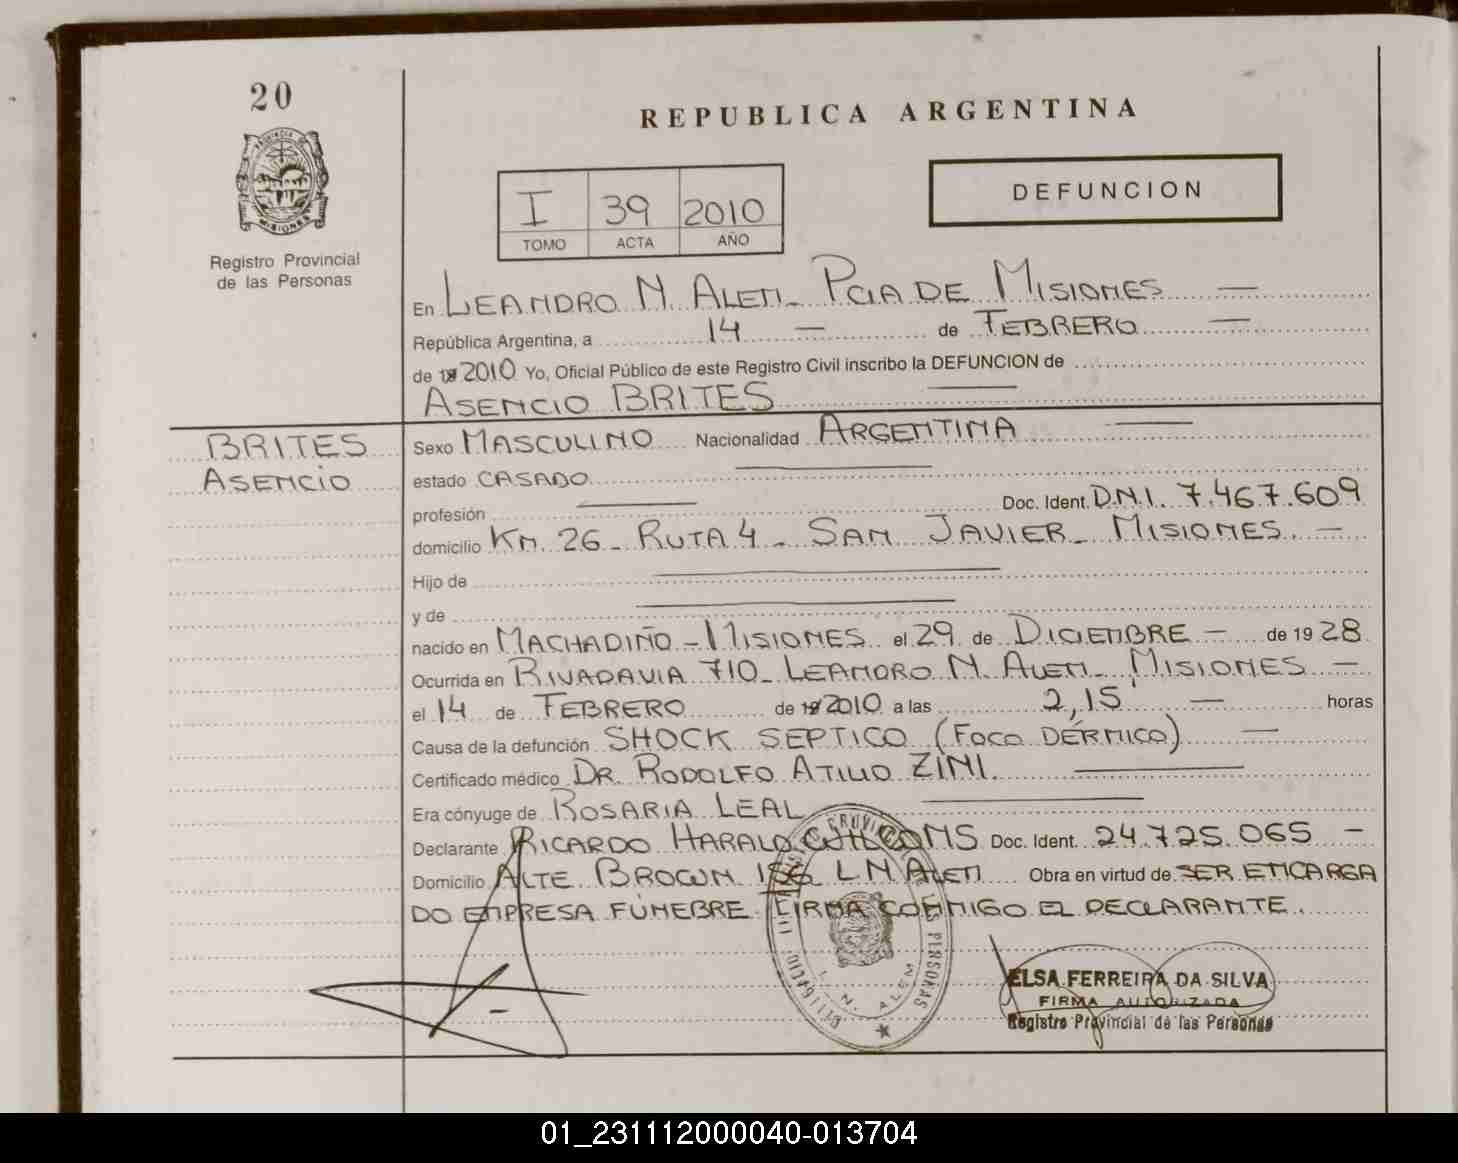 20
PROVINCIA DE
MISIONES
Registro Provincial
de las Personas
REPUBLICA ARGENTINA
DEFUNCION
I 39 2010
TOMO ACTA AÑO
En LEANDRO N. ALEM - PCIA DE MISIONES —
República Argentina, a 14 — de FEBRERO —
de 2010 Yo, Oficial Público de este Registro Civil inscribo la DEFUNCION de
ASENCIO BRITES —
BRITES
ASENCIO
Sexo MASCULINO Nacionalidad ARGENTINA —
estado CASADO —
profesión — Doc. Ident. D.N.I. 7.467.609
domicilio KM. 26 - RUTA 4 - SAN JAVIER - MISIONES —
Hijo de —
y de —
nacido en MACHADIÑO - MISIONES el 29 de DICIEMBRE — de 1928
Ocurrida en RIVADAVIA 710 - LEANDRO N. ALEM - MISIONES —
el 14 de FEBRERO de 2010 a las 2,15' — horas
Causa de la defunción SHOCK SEPTICO (FOCO DÉRMICO) —
Certificado médico DR. RODOLFO ATILIO ZINI. —
Era cónyuge de ROSARIA LEAL —
Declarante RICARDO HARALD Doc. Ident. 24.725.065 —
Domicilio ALTE BROWN L N ALEM Obra en virtud de SER ENCARGA
DO EMPRESA FÚNEBRE. FIRMA CONMIGO EL DECLARANTE.
L. N. ALEM
ELSA FERREIRA DA SILVA
FIRMA AUTORIZADA
Registro Provincial de las Personas
01_231112000040-013704